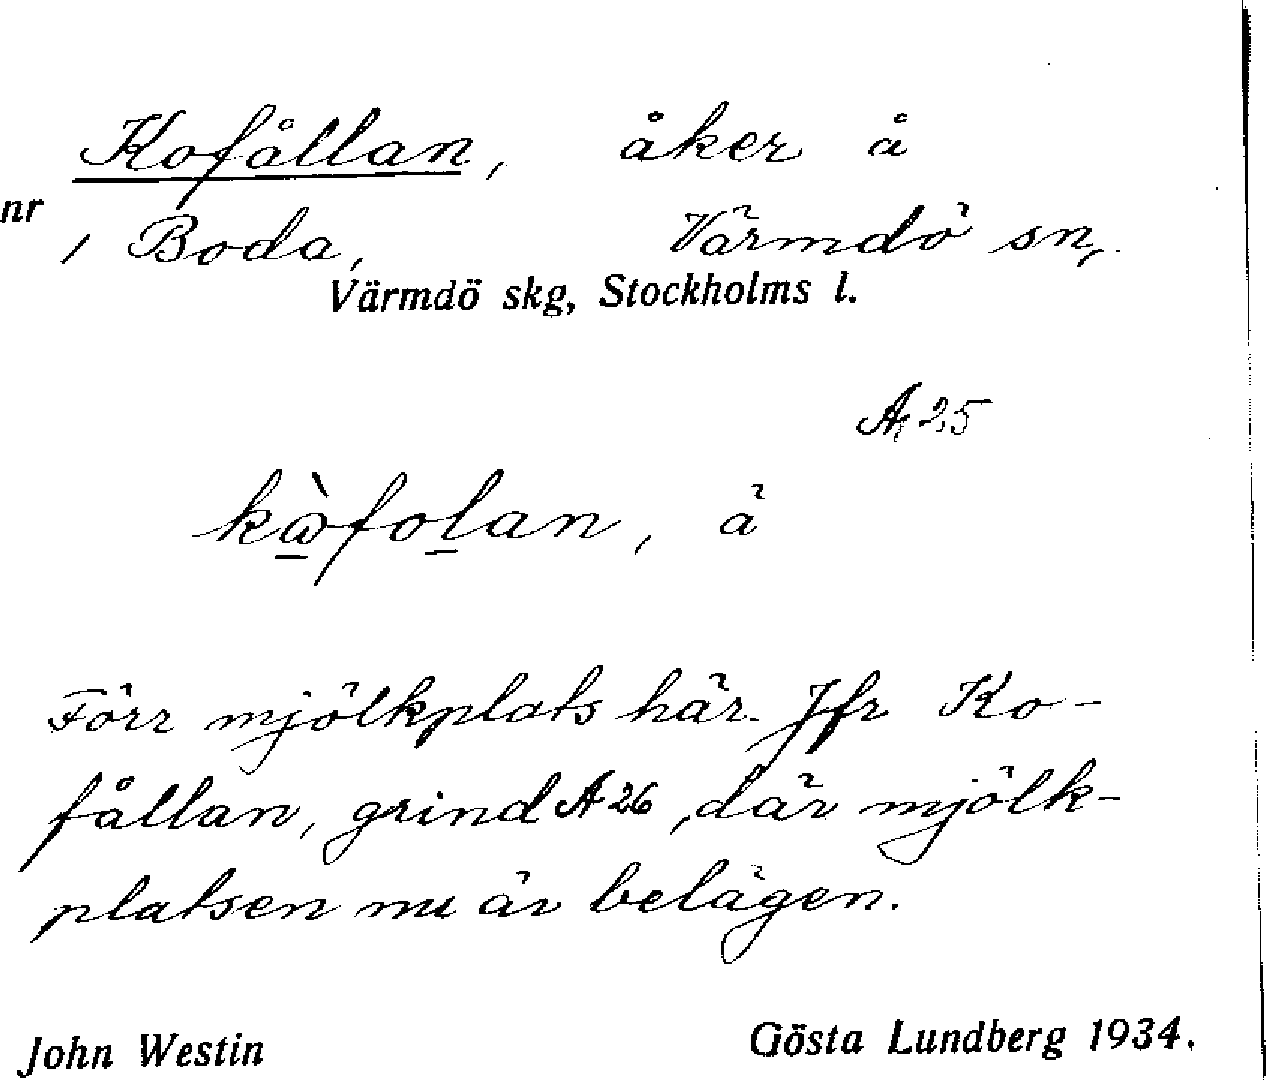 Kofållan, åker å
nr
, Boda, Värmdö sn,
Värmdö skg, Stockholms l.
A 25
kὼfolan, ä
Förr mjölkplats här. Jfr Ko-
fållan, grind A 26, där mjölk-
platsen nu är belägen.
John Westin Gösta Lundberg 1934.